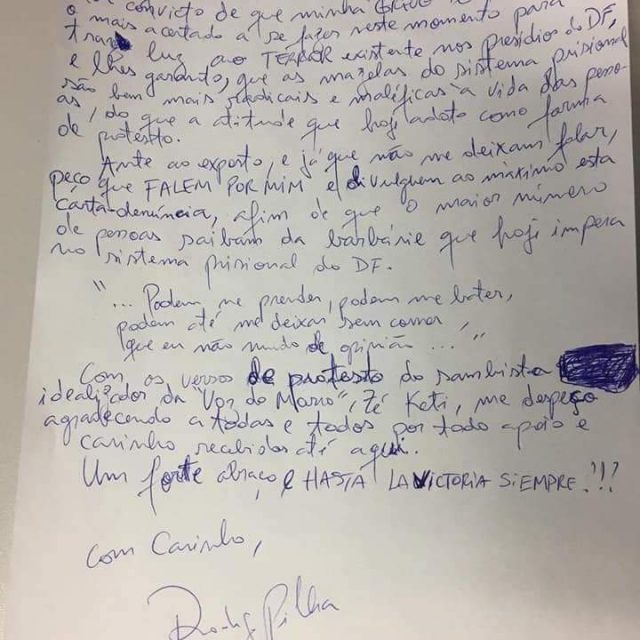 convicto de que minha greve
o mais acertado a se fazer neste momento para
trazer luz ao TERROR existente nos presídios do DF,
e lhes garanto, que as mazelas do sistema prisional
são bem mais radicais e maléficas à vida das pesso-
as, do que a atitude que hoje adoto como forma
de protesto.
Ante ao exposto, e já que não me deixam falar,
peço que FALEM POR MIM e divulguem ao máximo esta
carta-denúncia, afim de que o maior número
de pessoas saibam da barbárie que hoje impera
no sistema prisional do DF.
"... Podem me prender, podem me bater,
podem até me deixar sem comer,
que eu não mudo de opinião ..."
Com os versos de protesto do sambista
idealizador da "Voz do Morro", Zé Keti, me despeço
agradecendo a todas e todos por todo apoio e
carinho recebidos até aqui.
Um forte abraço e HASTA LA VICTORIA SIEMPRE!!!
Com Carinho,
Rodrigo Pilha